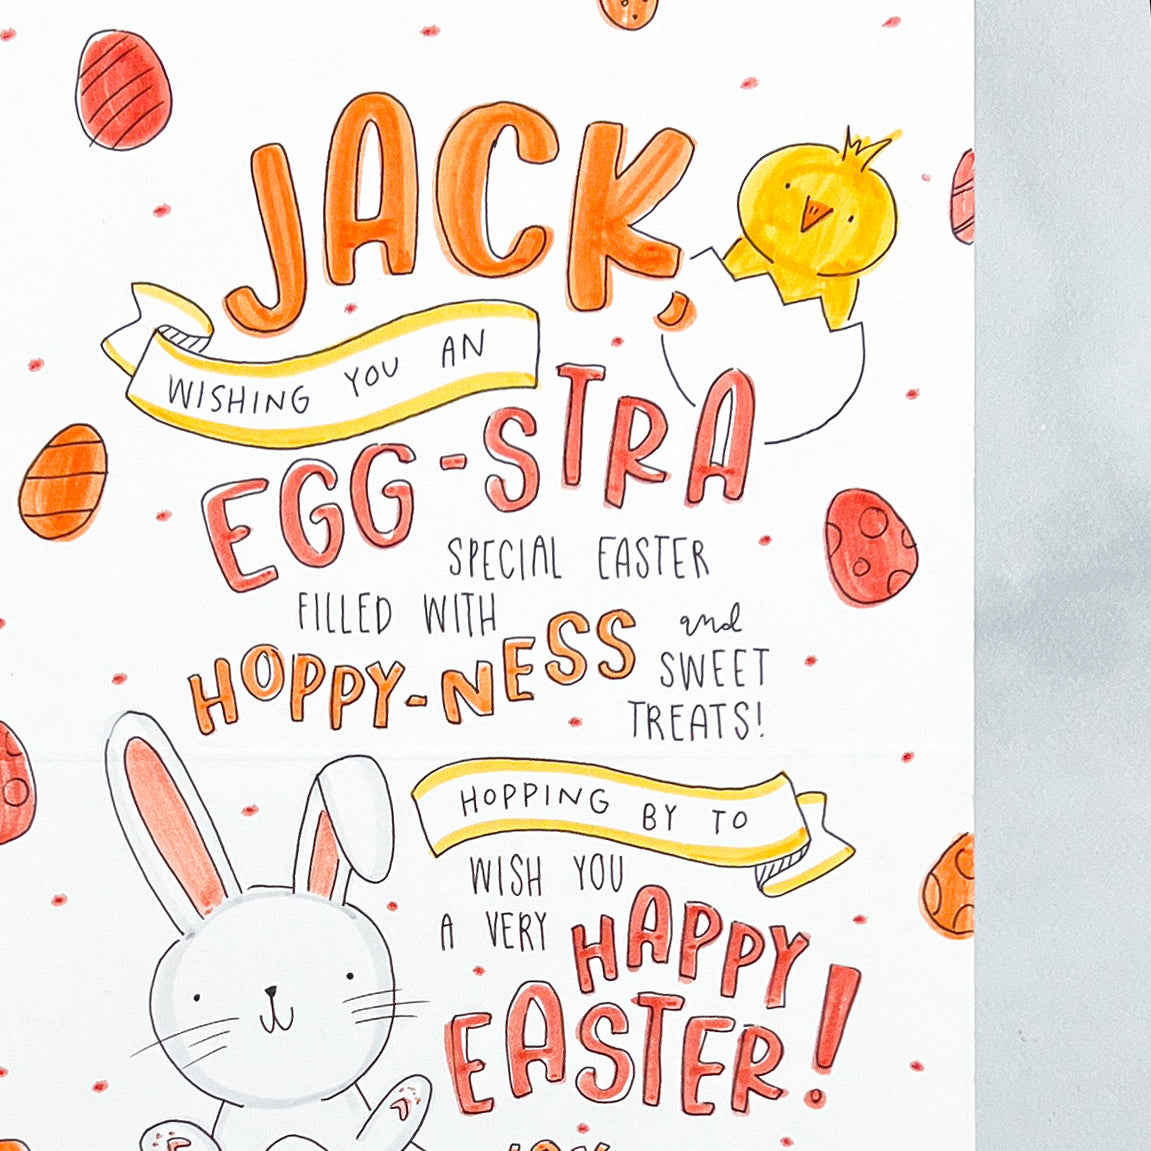 JACK,
WISHING YOU AN
EGG-STRA
SPECIAL EASTER
FILLED WITH
HOPPY-NESS and
SWEET
TREATS!
HOPPING BY TO
WISH YOU
A VERY HAPPY
EASTER!